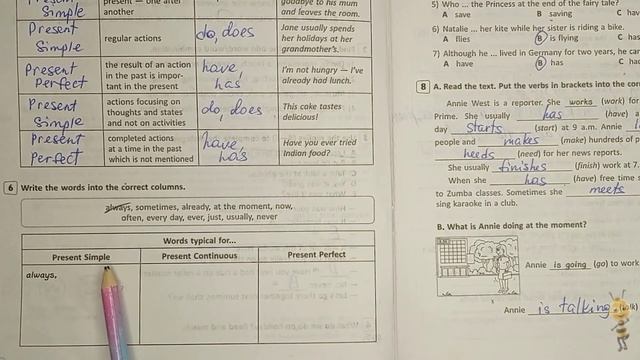 Simple
present – one after
another
goodbye to his mum
and leaves the room.
Present
Simple
regular actions
do, does
Jane usually spends
her holidays at her
grandmother's.
Present
Perfect
the result of an action
in the past is impor-
tant in the present
have,
has
I'm not hungry – I've
already had lunch.
Present
Simple
actions focusing on
thoughts and states
and not on activities
do, does
This cake tastes
delicious!
Present
Perfect
completed actions
at a time in the past
which is not mentioned
have,
has
Have you ever tried
Indian food?
6 Write the words into the correct columns.
always, sometimes, already, at the moment, now,
often, every day, ever, just, usually, never
Words typical for...
Present Simple Present Continuous Present Perfect
always,
5) Who ... the Princess at the end of the fairy tale?
A save B saving C
6) Natalie ... her kite while her sister is riding a bike.
A flies B is flying C has
7) Although he ... lived in Germany for two years, he can
A have B has C
8 A. Read the text. Put the verbs in brackets into the
Annie West is a reporter. She works (work) for
Prime. She usually has (have) a
day starts (start) at 9 a.m. Annie
people and makes (make) hundreds of
needs (need) for her news reports.
She usually finishes (finish) work at 7.
When she has (have) free time
to Zumba classes. Sometimes she meets
sing karaoke in a club.
B. What is Annie doing at the moment?
Annie is going (go) to work
Annie is talking